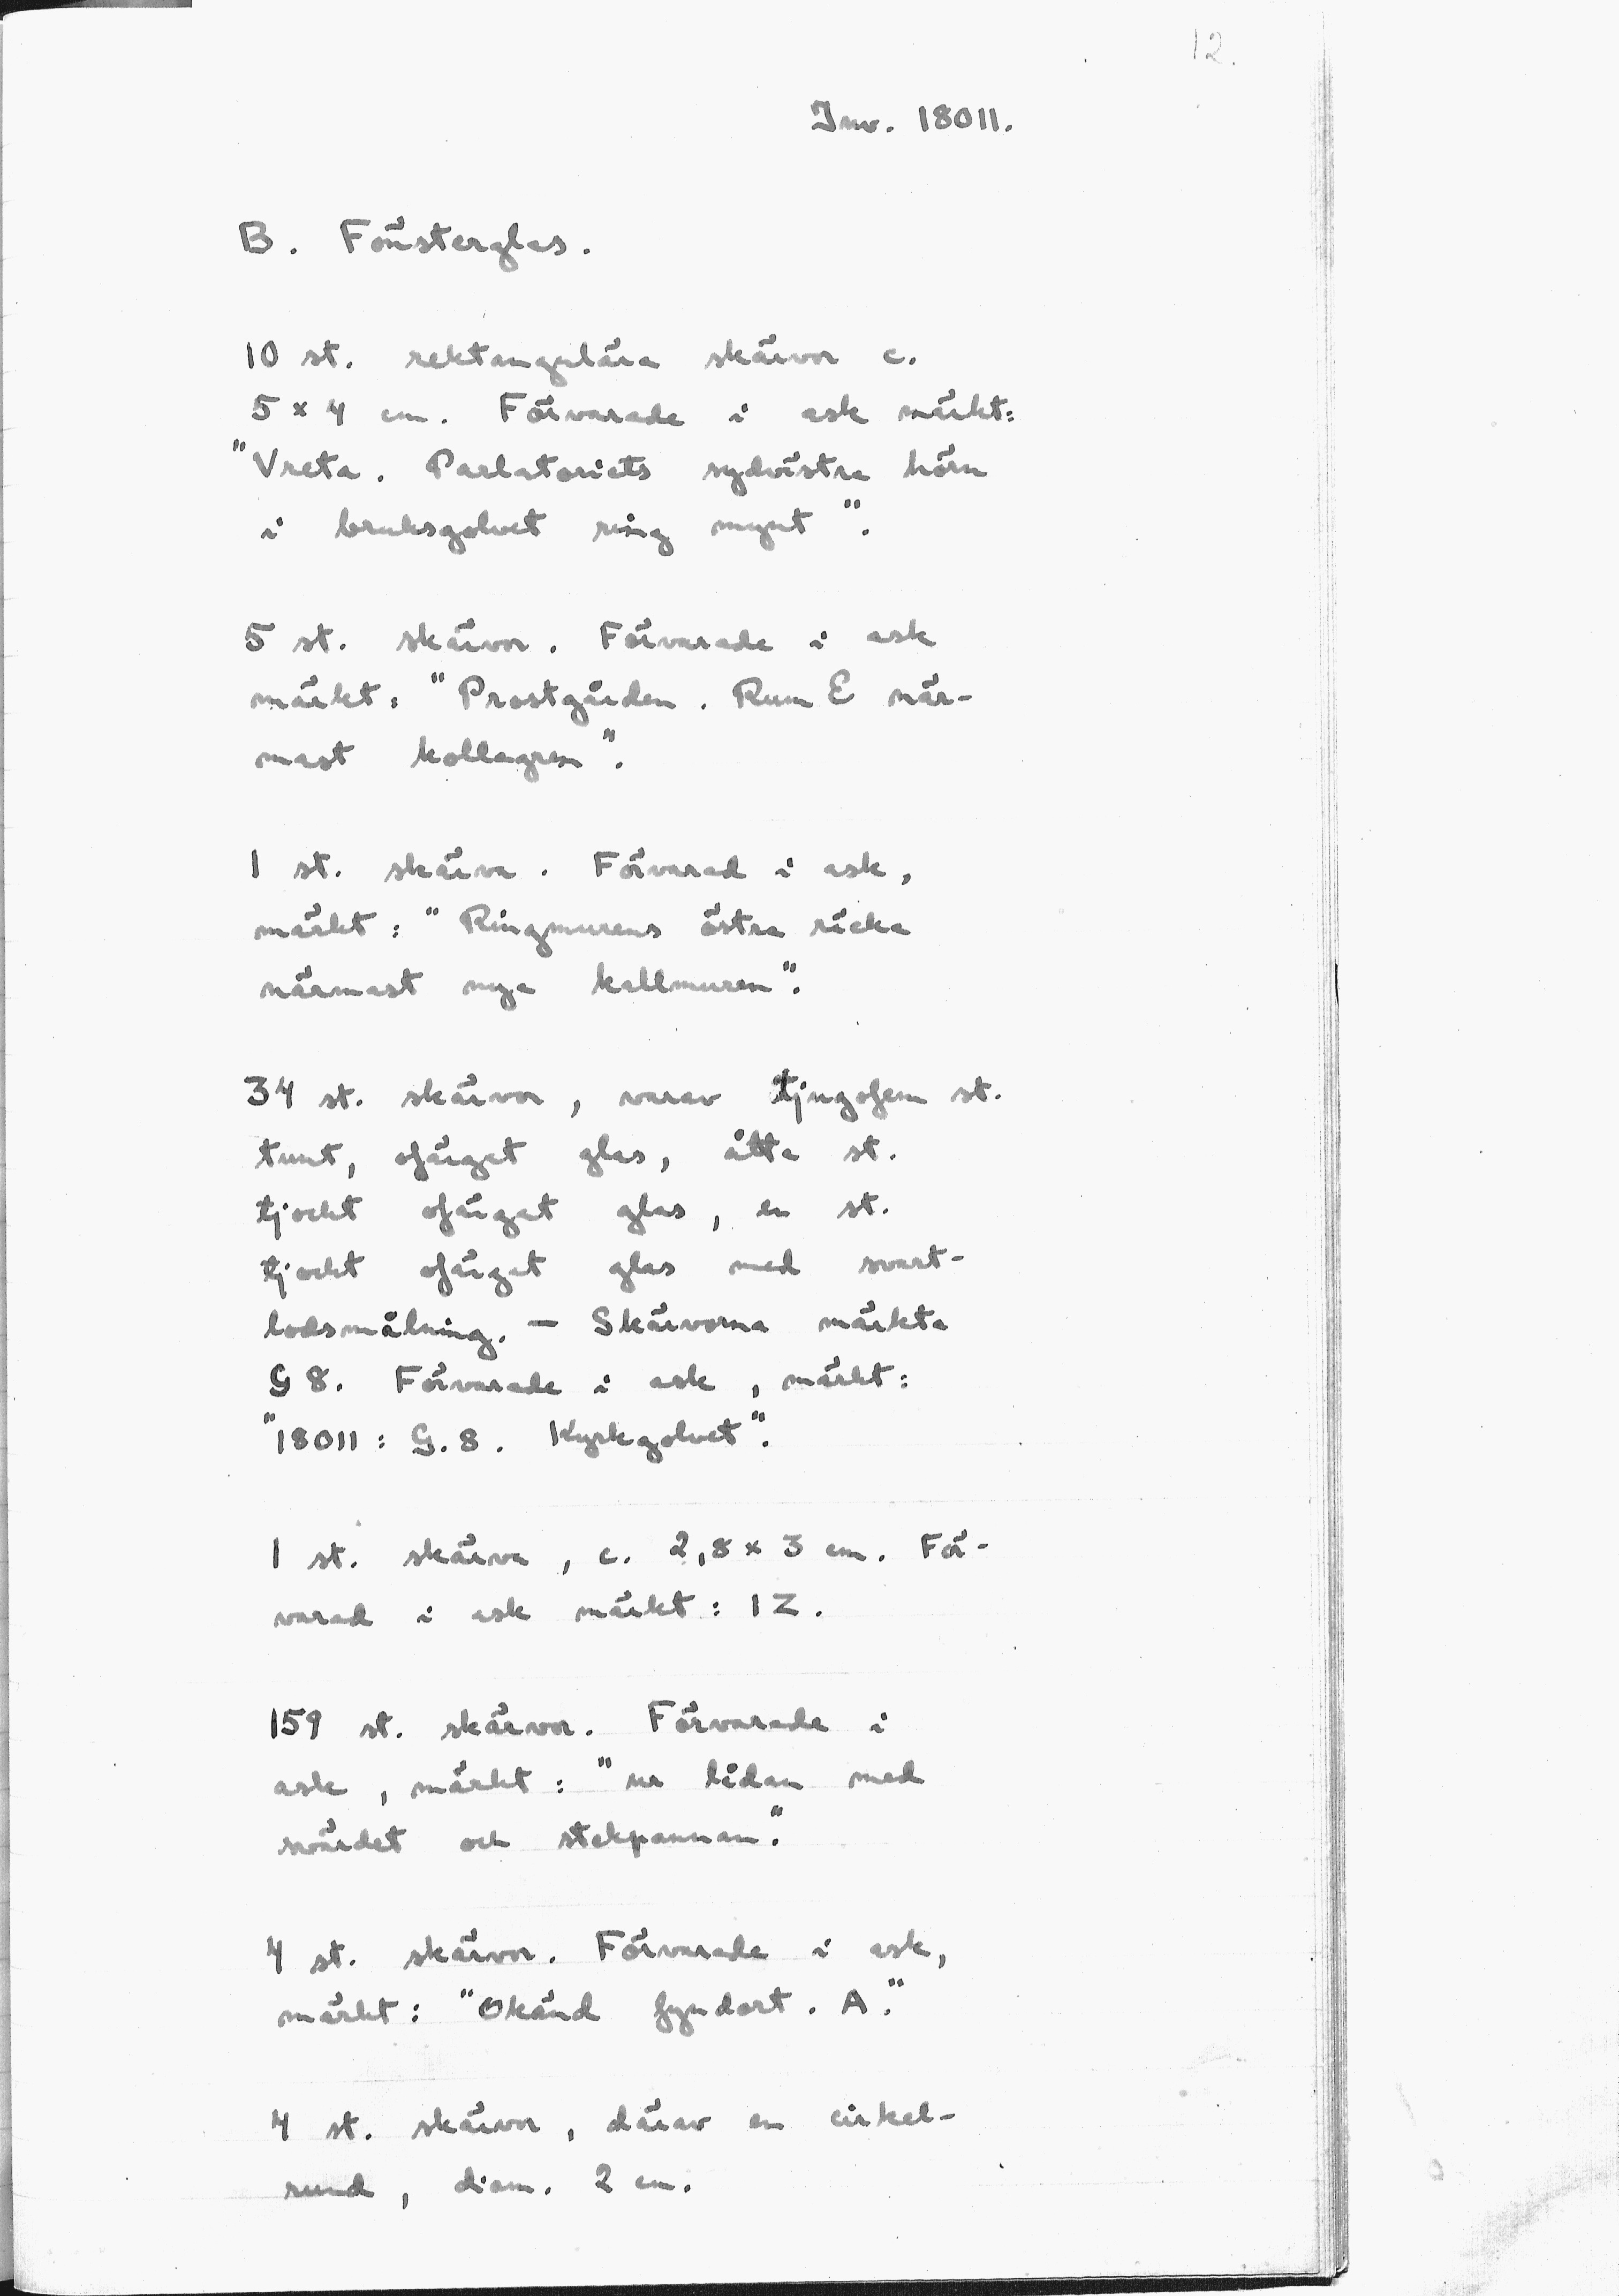 12.
Inv. 18011.
B. Fönsterglas.
10 st. rektangulära skärvor c.
5 x 4 cm. Förvarade i ask märkt:
"Vreta. Parlatoriets sydvästra hörn
i bruksgolvet ring mynt".
5 st. skärvor. Förvarade i ask
märkt: "Prostgården. Rum E när-
mast kollagren".
1 st. skärva. Förvarad i ask,
märkt: "Ringmurens östra räcka
närmast nya kallmuren".
34 st. skärvor, varav tjugofem st.
tunt, ofärgat glas, åtta st.
tjockt ofärgat glas, en st.
tjockt ofärgat glas med svart-
lodsmålning. - Skärvorna märkta
G 8. Förvarade i ask, märkt:
"18011: G.8. Kyrkgolvet".
1 st. skärva, c. 2,8 x 3 cm. För-
varad i ask märkt: 1Z.
159 st. skärvor. Förvarade i
ask, märkt: "ur lådan med
svärdet och stekpannan".
4 st. skärvor. Förvarade i ask,
märkt: "Okänd fyndort. A."
4 st. skärvor, därav en cirkel-
rund, diam. 2 cm.